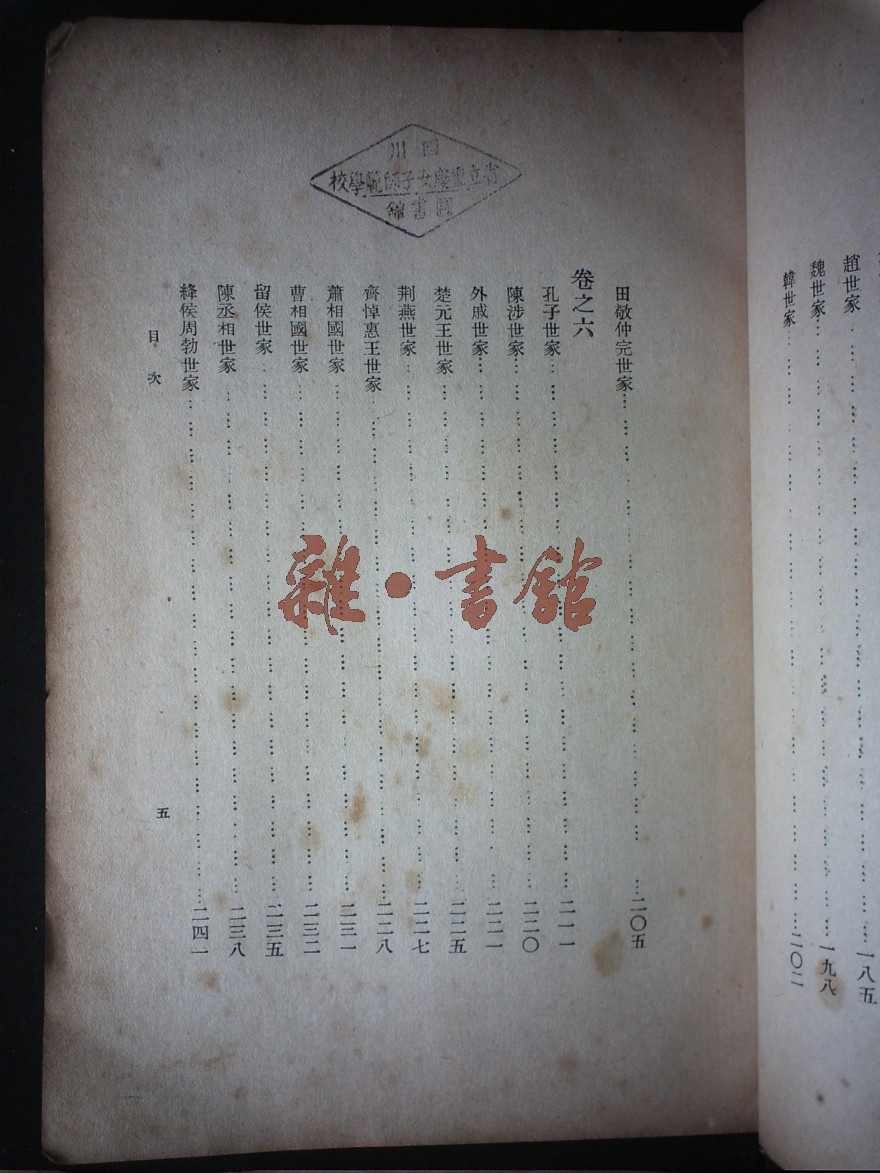 趙世家……一八五
魏世家……一九八
韓世家……二〇二
四川
省立重慶女子師範學校
圖書館
田敬仲完世家……二〇五
卷之六
孔子世家……二一一
陳涉世家……二二〇
外戚世家……二二一
楚元王世家……二二五
荆燕世家……二二七
齊悼惠王世家……二二八
蕭相國世家……二三一
曹相國世家……二三二
留侯世家……二三五
陳丞相世家……二三八
絳侯周勃世家……二四一
目次
五
雜·書館